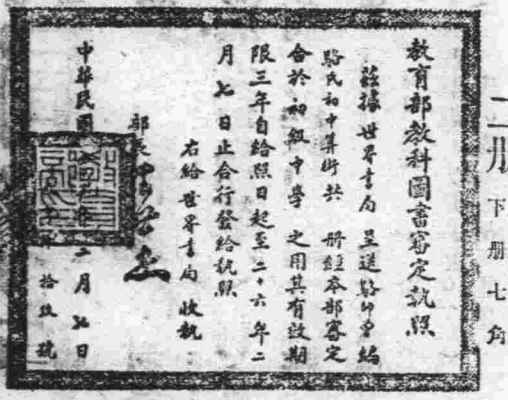 教育部教科圖書審定執照
茲據世界書局呈送駱師曾編
駱氏初中算術共 册經本部審定
合於初級中學 之用其有效期
限三年自給照日起至二十六年二
月七日止合行發給執照
右給世界書局收執
部長
中華民國 二月七日
拾 號
二册
下册七角